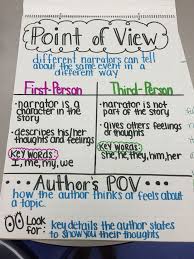 Point of View
different narrators can tell
about the same event in a
different way
First-Person
Third-Person
- narrator is a
character in the
story
- describes his/her
thoughts and
feelings
KEY WORDS
I, me, my, we
- narrator is not
part of the story
- gives others feelings
or thoughts
KEY WORDS
she, he, they, him, her
Author's POV
how the author thinks or feels about
a topic.
Look
for:
key details the author states
to show you their thoughts